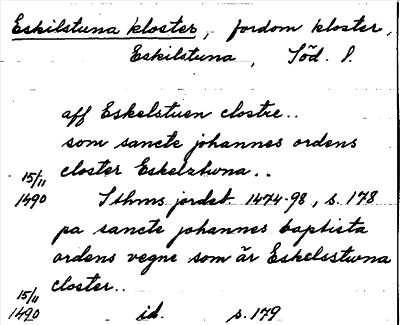 Eskilstuna kloster, fordom kloster,
Eskilstuna, Söd. l.
aff Eskelstuen clostre..
som sancte johannes ordens
15/11 closter Eskelstwna..
1490 Sthms jordeb. 1474-98, s. 178
pa sancte johannes baptista
ordens vegne som är Eskelsstwna
15/11 closter..
1490 id. s. 179